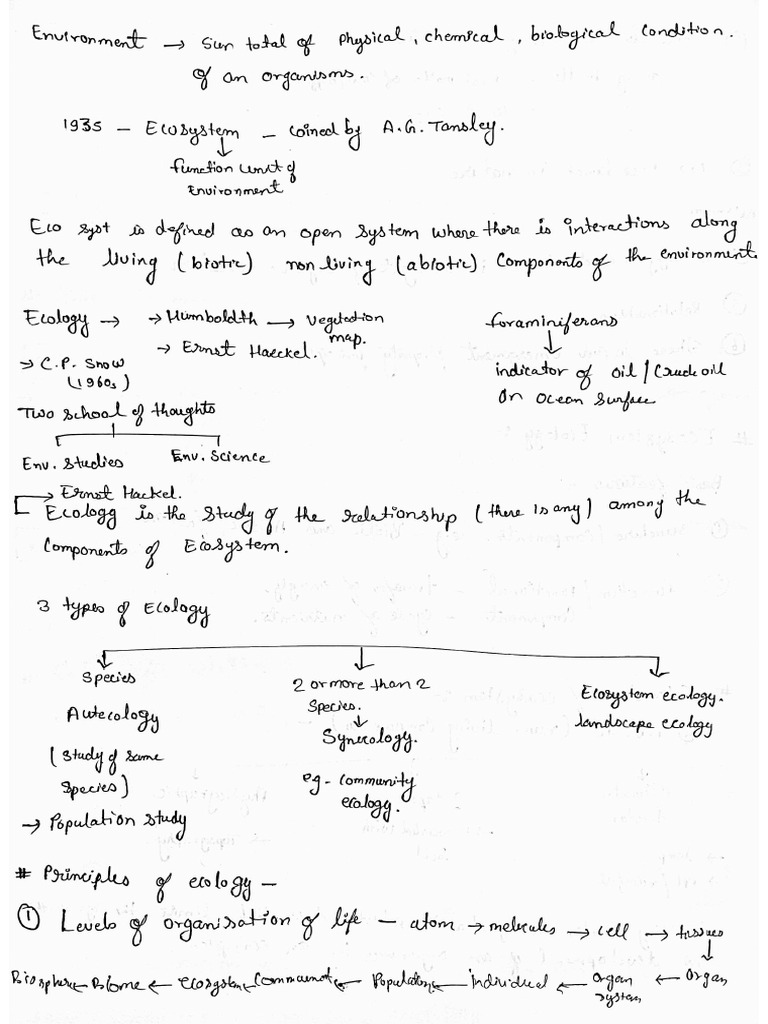 Environment → Sun total of physical, chemical, biological condition.
of an organisms.
1935 - Ecosystem - coined by A.G. Tansley.
↓
function unit of
Environment
Eco syst is defined as an open system where there is interactions along
the living (biotic) non living (abiotic) components of the environment.
Ecology → → Humboldth → vegetation
map.
→ Ernst Haeckel.
→ C.P. Snow
(1960s)
foraminiferans
↓
indicator of oil / crude oil
on ocean surface
Two school of thoughts
Env. studies Env. Science
→ Ernst Hackel.
Ecology is the study of the relationship (there is any) among the
components of Ecosystem.
3 types of Ecology
Species
Autecology
(study of same
species)
→ Population study
2 or more than 2
Species.
↓
Synecology.
eg- community
ecology.
Ecosystem ecology.
landscape ecology
# Principles of ecology -
① Levels of organisation of life - atom → molecules → cell → tissues
↓
Biosphere ← Biome ← ecosystem ← Communit ← Population ← individual ← organ system ← organ